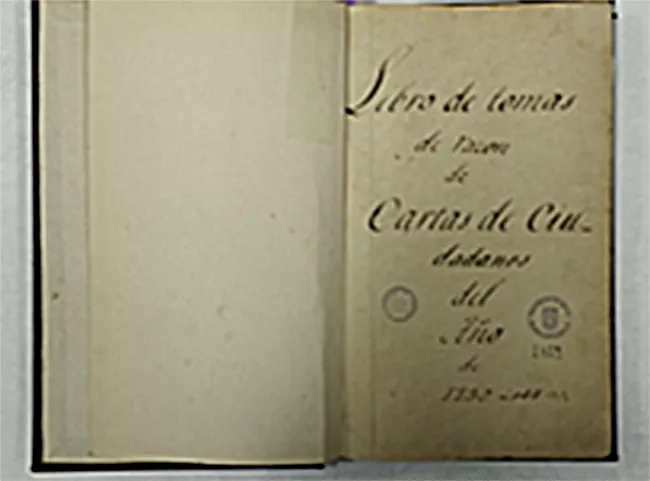 Libro de tomas
de razon
de
Cartas de Ciu-
dadanos
del
Año
de